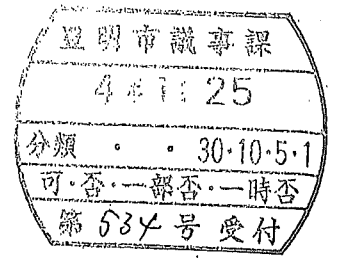 豊明市議事課
4.11.25
分類 ・ ・ 30・10・5・1
可・否・一部否・一時否
第 534 号 受付